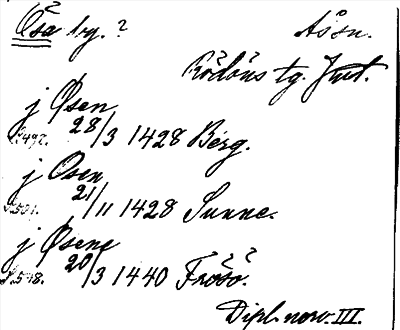 Ösa by. ? Åsn.
Rödöns tg. Jmt.
j Øsen
S.497. 28/3 1428 Berg.
j Osen
S.501. 21/11 1428 Sunne.
j Øsene
S.548. 20/3 1440 Frösö.
Dipl. norv. III.